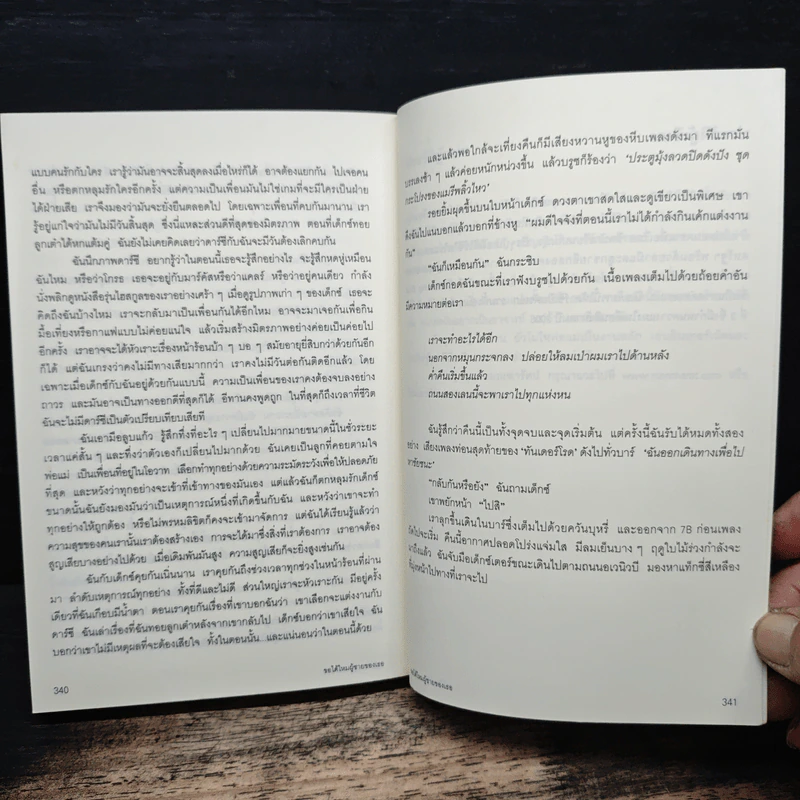 แบบคนรักกับใคร เรารู้ว่ามันอาจจะสิ้นสุดลงเมื่อไหร่ก็ได้ อาจต้องแยกกัน ไปเจอคน
อื่น หรือตกหลุมรักใครอีกครั้ง แต่ความเป็นเพื่อนมันไม่ใช่เกมที่จะมีใครเป็นฝ่าย
ได้ฝ่ายเสีย เราจึงมองว่ามันจะยั่งยืนตลอดไป โดยเฉพาะเพื่อนที่คบกันมานาน เรา
รู้อยู่แก่ใจว่ามันไม่มีวันสิ้นสุด ซึ่งนี่แหละส่วนดีที่สุดของมิตรภาพ ตอนที่เด็กซ์ทอย
ลูกเต๋าได้หกแต้มคู่ ฉันยังไม่เคยคิดเลยว่าดาร์ซีกับฉันจะมีวันต้องเลิกคบกัน
ฉันนึกภาพดาร์ซี อยากรู้ว่าในตอนนี้เธอจะรู้สึกอย่างไร จะรู้สึกหดหู่เหมือน
ฉันไหม หรือว่าโกรธ เธอจะอยู่กับมาร์คัสหรือว่าแคลร์ หรือว่าอยู่คนเดียว กำลัง
นั่งพลิกดูหนังสือรุ่นไฮสกูลของเราอย่างเศร้า ๆ เมื่อดูรูปภาพเก่า ๆ ของเด็กซ์ เธอจะ
คิดถึงฉันบ้างไหม เราจะกลับมาเป็นเพื่อนกันได้อีกไหม อาจจะมาเจอกันเพื่อกิน
มื้อเที่ยงหรือกาแฟแบบไม่ค่อยแน่ใจ แล้วเริ่มสร้างมิตรภาพอย่างค่อยเป็นค่อยไป
อีกครั้ง เราอาจจะได้หัวเราะเรื่องหน้าร้อนบ้า ๆ บอ ๆ สมัยอายุยี่สิบกว่าด้วยกันอีก
ก็ได้ แต่ฉันเกรงว่าคงไม่มีทางเสียมากกว่า เราคงไม่มีวันต่อกันติดอีกแล้ว โดย
เฉพาะเมื่อเด็กซ์กับฉันอยู่ด้วยกันแบบนี้ ความเป็นเพื่อนของเราคงต้องจบลงอย่าง
ถาวร และมันอาจเป็นทางออกที่ดีที่สุดก็ได้ อีทานคงพูดถูก ในที่สุดก็ถึงเวลาที่ชีวิต
ฉันจะไม่มีดาร์ซีเป็นตัวเปรียบเทียบเสียที
ฉันเอามือลูบแก้ว รู้สึกทึ่งที่อะไร ๆ เปลี่ยนไปมากมายขนาดนี้ในชั่วระยะ
เวลาแค่สั้น ๆ และทึ่งว่าตัวเองก็เปลี่ยนไปมากด้วย ฉันเคยเป็นลูกที่คอยตามใจ
พ่อแม่ เป็นเพื่อนที่อยู่ในโอวาท เลือกทำทุกอย่างด้วยความระมัดระวังเพื่อให้ปลอดภัย
ที่สุด และหวังว่าทุกอย่างจะเข้าที่เข้าทางของมันเอง แต่แล้วฉันก็ตกหลุมรักเด็กซ์
ขนาดนั้นฉันยังมองมันว่าเป็นเหตุการณ์หนึ่งที่เกิดขึ้นกับฉัน และหวังว่าเขาจะทำ
ทุกอย่างให้ถูกต้อง หรือไม่พรหมลิขิตก็คงจะเข้ามาจัดการ แต่ฉันได้เรียนรู้แล้วว่า
ความสุขของคนเรานั้นเราต้องสร้างเอง การจะได้มาซึ่งสิ่งที่เราต้องการ เราอาจต้อง
สูญเสียบางอย่างไปด้วย เมื่อเดิมพันมันสูง ความสูญเสียก็จะยิ่งสูงเช่นกัน
ฉันกับเด็กซ์คุยกันเนิ่นนาน เราคุยกันถึงช่วงเวลาทุกช่วงในหน้าร้อนที่ผ่าน
มา ลำดับเหตุการณ์ทุกอย่าง ทั้งที่ดีและไม่ดี ส่วนใหญ่เราจะหัวเราะกัน มีอยู่ครั้ง
เดียวที่ฉันเกือบมีน้ำตา ตอนเราคุยกันเรื่องที่เขาบอกฉันว่า เขาเลือกจะแต่งงานกับ
ดาร์ซี ฉันเล่าเรื่องที่ฉันทอยลูกเต๋าหลังจากเขากลับไป เด็กซ์บอกว่าเขาเสียใจ ฉัน
บอกว่าเขาไม่มีเหตุผลที่จะต้องเสียใจ ทั้งในตอนนั้น และแน่นอนว่าในตอนนี้ด้วย
ขอได้ไหมผู้ชายของเธอ
340
และแล้วพอใกล้จะเที่ยงคืนก็มีเสียงหวานหูของหีบเพลงดังมา ทีแรกมัน
บรรเลงช้า ๆ แล้วค่อยหนักหน่วงขึ้น แล้วบรูซก็ร้องว่า 'ประตูมุ้งลวดปิดดังปัง ชุด
กระโปรงของแมรีพลิ้วไหว'
รอยยิ้มผุดขึ้นบนใบหน้าเด็กซ์ ดวงตาเขาสดใสและดูเขียวเป็นพิเศษ เขา
ดึงฉันไปแนบอกแล้วบอกที่ข้างหู "ผมดีใจจังที่ตอนนี้เราไม่ได้กำลังกินเค้กแต่งงาน
กัน"
"ฉันก็เหมือนกัน" ฉันกระซิบ
เด็กซ์กอดฉันขณะที่เราฟังบรูซไปด้วยกัน เนื้อเพลงเต็มไปด้วยถ้อยคำอัน
มีความหมายต่อเรา
เราจะทำอะไรได้อีก
นอกจากหมุนกระจกลง ปล่อยให้ลมเป่าผมเราไปด้านหลัง
ค่ำคืนเริ่มขึ้นแล้ว
ถนนสองเลนนี้จะพาเราไปทุกแห่งหน
ฉันรู้สึกว่าคืนนี้เป็นทั้งจุดจบและจุดเริ่มต้น แต่ครั้งนี้ฉันรับได้หมดทั้งสอง
อย่าง เสียงเพลงท่อนสุดท้ายของ 'ทันเดอร์โรด' ดังไปทั่วบาร์ 'ฉันออกเดินทางเพื่อไป
หาชัยชนะ'
"กลับกันหรือยัง" ฉันถามเด็กซ์
เขาพยักหน้า "ไปสิ"
เราลุกขึ้นเดินในบาร์ซึ่งเต็มไปด้วยควันบุหรี่ และออกจาก 7B ก่อนเพลง
ถัดไปจะเริ่ม คืนนี้อากาศปลอดโปร่งแจ่มใส มีลมเย็นบาง ๆ ฤดูใบไม้ร่วงกำลังจะ
มาถึงแล้ว ฉันจับมือเด็กซ์เตอร์ขณะเดินไปตามถนนอเวนิวบี มองหาแท็กซี่สีเหลือง
ที่มุ่งหน้าไปทางที่เราจะไป
ขอได้ไหมผู้ชายของเธอ
341